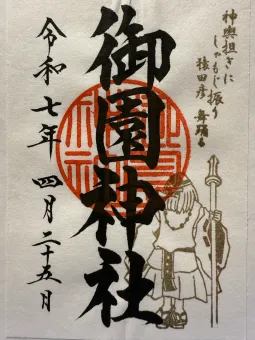 神輿担ぎに
しゃもじ振り
猿田彦 舞踊る
御園神社
令和七年 四月二十五日